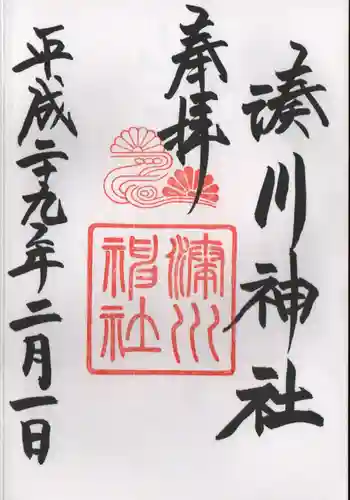 湊川神社
奉拝
湊川
神社
平成二十九年二月一日